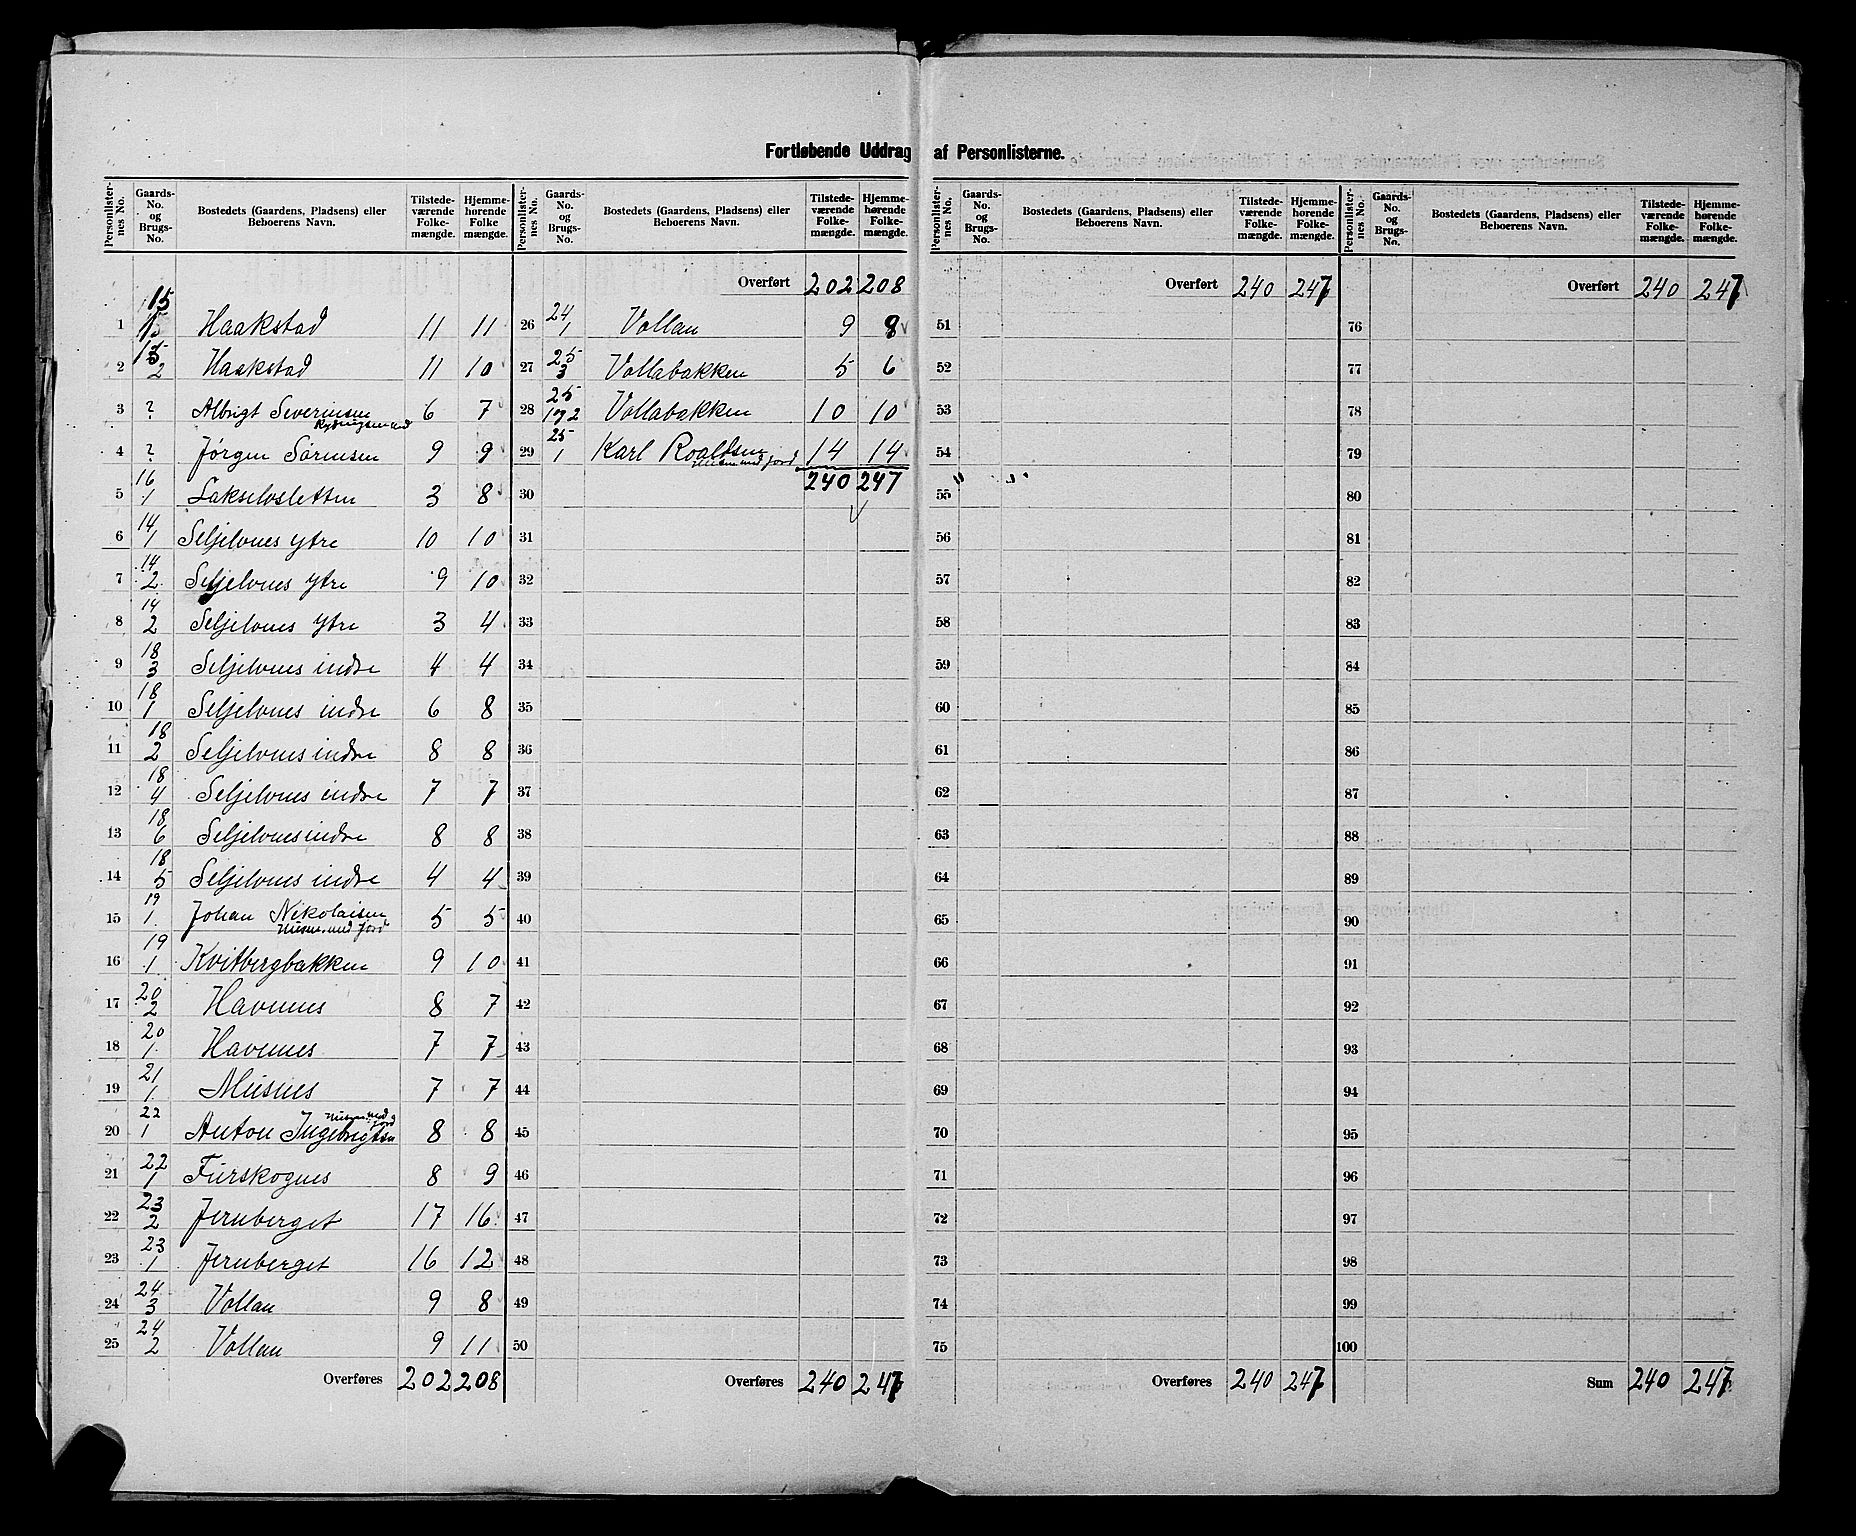 Fortløbende Uddrag af Personlisterne.
Personlister-nes No. | Gaards-No. og Brugs-No. | Bostedets (Gaardens, Pladsens) eller Beboerens Navn. | Tilstede-værende Folke-mængde. | Hjemme-hørende Folke mængde.
1 | 15 15 | Haakstad | 11 | 11
2 | 15 2 | Haakstad | 11 | 10
3 | ? | Albrigt Severinsen | 6 | 7
4 | ? | Jørgen Sørensen | 9 | 9
5 | 16 1 | Lakselvsletten | 3 | 8
6 | 14 1 | Seljelvnes ytre | 10 | 10
7 | 14 2 | Seljelvnes ytre | 9 | 10
8 | 14 2 | Seljelvnes ytre | 3 | 4
9 | 18 3 | Seljelvnes indre | 4 | 4
10 | 18 1 | Seljelvnes indre | 6 | 8
11 | 18 2 | Seljelvnes indre | 8 | 8
12 | 18 4 | Seljelvnes indre | 7 | 7
13 | 18 6 | Seljelvnes indre | 8 | 8
14 | 18 5 | Seljelvnes indre | 4 | 4
15 | 19 1 | Johan Nikolaisen Husm. med jord | 5 | 5
16 | 19 1 | Kvitbergbakken | 9 | 10
17 | 20 2 | Havnnes | 8 | 7
18 | 20 1 | Havnnes | 7 | 7
19 | 21 1 | Misnes | 7 | 7
20 | 22 1 | Anton Ingebrigtsn Husm. med jord | 8 | 8
21 | 22 1 | Furskognes | 8 | 9
22 | 23 2 | Jernberget | 17 | 16
23 | 23 1 | Jernberget | 16 | 12
24 | 24 3 | Vollan | 9 | 8
25 | 24 2 | Vollan | 9 | 11
Overføres 202 208
Personlister-nes No. | Gaards-No. og Brugs-No. | Bostedets (Gaardens, Pladsens) eller Beboerens Navn. | Tilstede-værende Folke-mængde. | Hjemme-hørende Folke-mængde.
Overført 202 208
26 | 24 1 | Vollan | 9 | 8
27 | 25 3 | Vollabakken | 5 | 6
28 | 25 1 og 2 | Vollabakken | 10 | 10
29 | 25 1 | Karl Roaldsen Husm med jord | 14 | 14
30 | 240 | 247
31
32
33
34
35
36
37
38
39
40
41
42
43
44
45
46
47
48
49
50
Overføres 240 247
Personlister-nes No. | Gaards-No. og Brugs-No. | Bostedets (Gaardens, Pladsens) eller Beboerens Navn. | Tilstede-værende Folke-mængde. | Hjemme-hørende Folke-mængde.
Overført 240 247
51
52
53
54
55
56
57
58
59
60
61
62
63
64
65
66
67
68
69
70
71
72
73
74
75
Overføres 240 247
Personlister-nes No. | Gaards-No. og Brugs-No. | Bostedets (Gaardens, Pladsens) eller Beboerens Navn. | Tilstede-værende Folke-mængde. | Hjemme-hørende Folke-mængde.
Overført 240 247
76
77
78
79
80
81
82
83
84
85
86
87
88
89
90
91
92
93
94
95
96
97
98
99
100
Sum 240 247